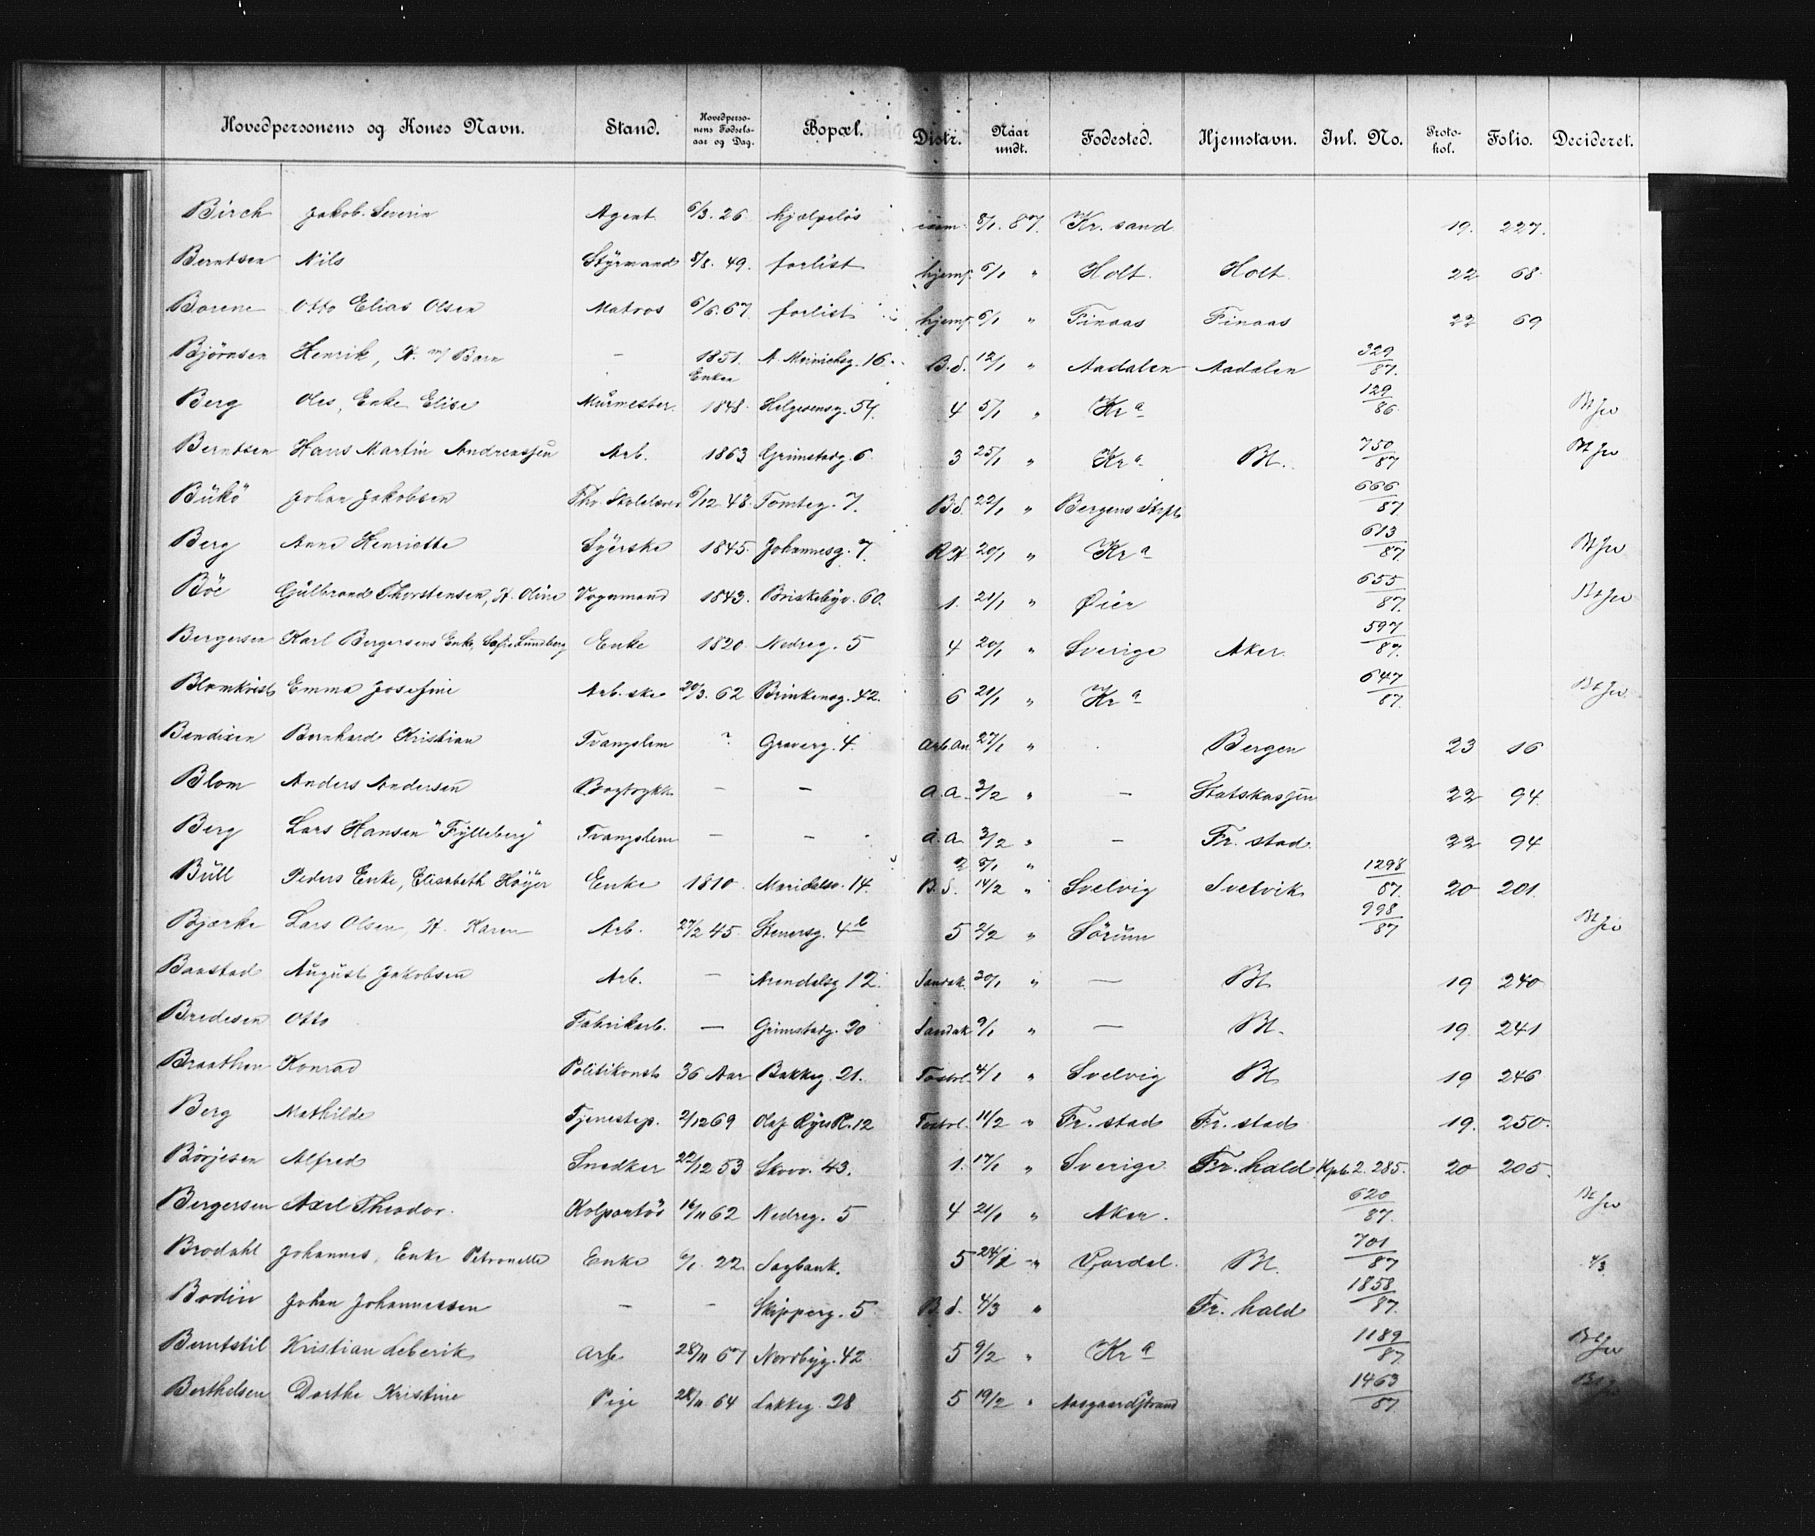 Hovedpersonens og Kones Navn. Stand. Hovedpersonens Fødselsaar og Dag. Bopæl. Distr. Naar undt. Fødested. Hjemstavn. Inl. No. Protokol. Folio. Decideret.
Birch Jakob Severin Agent 6/3. 26 hjælpeløs 8/1. 87. Kr. sand 19. 227.
Berntsen Nils Styrmand 8/8. 49. forlist hjemf. 6/1 " Holt. Holt 22 68.
Borene Otto Elias Olsen Matros 6/6. 67. forlist hjemf. 6/1 " Finaas Finaas 22 69
Bjørnsen Henrik, H. m/ Barn – 1851. A. Meinichsg. 16. B.S. 12/1 " Aadalen Aadalen 329/87.
Berg Oles, Enke Elise Murmester. Enken 1848. Helgesensg. 54. 4 5/1 " Kr a 129/86.
Berntsen Hans Martin Andreassen Arb. 1863 Grimstadg. 6. 3 25/1 " Kr a Bt. 750/87
Bukö Johan Jakobsen 6/12 48. Tomteg. 7. B.S. 22/1 " Bergens Stift 666/87.
Berg Anne Henriette Syerske 1845. Johannesg. 7. R.H. 20/1 " Kr a 613/87.
Böe Gulbrand Thorstensen, H. Oline Vognmand 1843. Briskebyv. 60. 1. 21/1 " Øier 655/87.
Bergersen Karl Bergersens Enke, Sofie Lundberg Enke 1820. Nedreg. 5 4 20/1 " Sverige Aker. 597/87.
Blomkvist Emma Josefine Arb. ske 20/3. 62 Brinkensg. 42. 6 21/1 " Kr a 647/87.
Bendixen Bernhard Kristian Tvangslem ? Graverg. 4. Arb.An 27/1 " Bergen 23 16
Blom Anders Andersen Bogtrykk. – – a.a. 3/2 " – Statskassen 22 94.
Berg Lars Hansen "Fylleberg" Tvangslem – – a.a. 3/2 " – Fr. stad. 22 94
2 8/1 "
Bull Peders Enke, Elisabeth Höyer Enke 1810. Maridalsv. 14. B.S. 14/2 " Svelvig Svelvik 1298/87. 20 201.
Bjærke Lars Olsen, H. Karen Arb. 27/2 45. Stenersg. 4 b 5 2/2 " Sörum 998/87
Baastad August Jakobsen Arb. – Arendalsg 12. Sandak. 20/1 " – Bt 19 240
Bredesen Otto Fabrikarb. – Grimstadg. 20 Sandak 9/1 " – Bt. 19. 241
Braathen Konrad Politikonst. 36 Aar Bakkeg. 21. 4/1 " Svelvig Bt 19 246
Berg Mathilde Tjenestep. 2/12 69 Olaf Ryes Pl. 12 11/2 " Fr. stad Fr. stad 19. 250.
Börjesen Alfred Snedker 22/12 53 Skovv. 43. 1. 17/1 " Sverige. Fr. hald. Kpb. 2. 285. 20 205.
Bergersen Axel Theodor. Kolportör 16/11 62 Nedreg. 5 4 21/1 " Aker. 620/87.
Brodahl Johannes, Enke Petronelle Enke 6/1. 22. Sagbank. 5 24/1 " Værdal. Bt. 701/87 4/3.
Bodin Johan Johannessen – – Skipperg. 5. B.S. 4/3 " Fr. hald 1858/87.
Berntstil Kristian Leberik Arb 28/11 67 Nordbyg. 42 5 9/2 " Kr a 1189/87.
Berthelsen Dorthe Kristine Pige 28/11. 64 Lakkeg. 28 5 19/2 " Aasgaardstrand 1463/87.